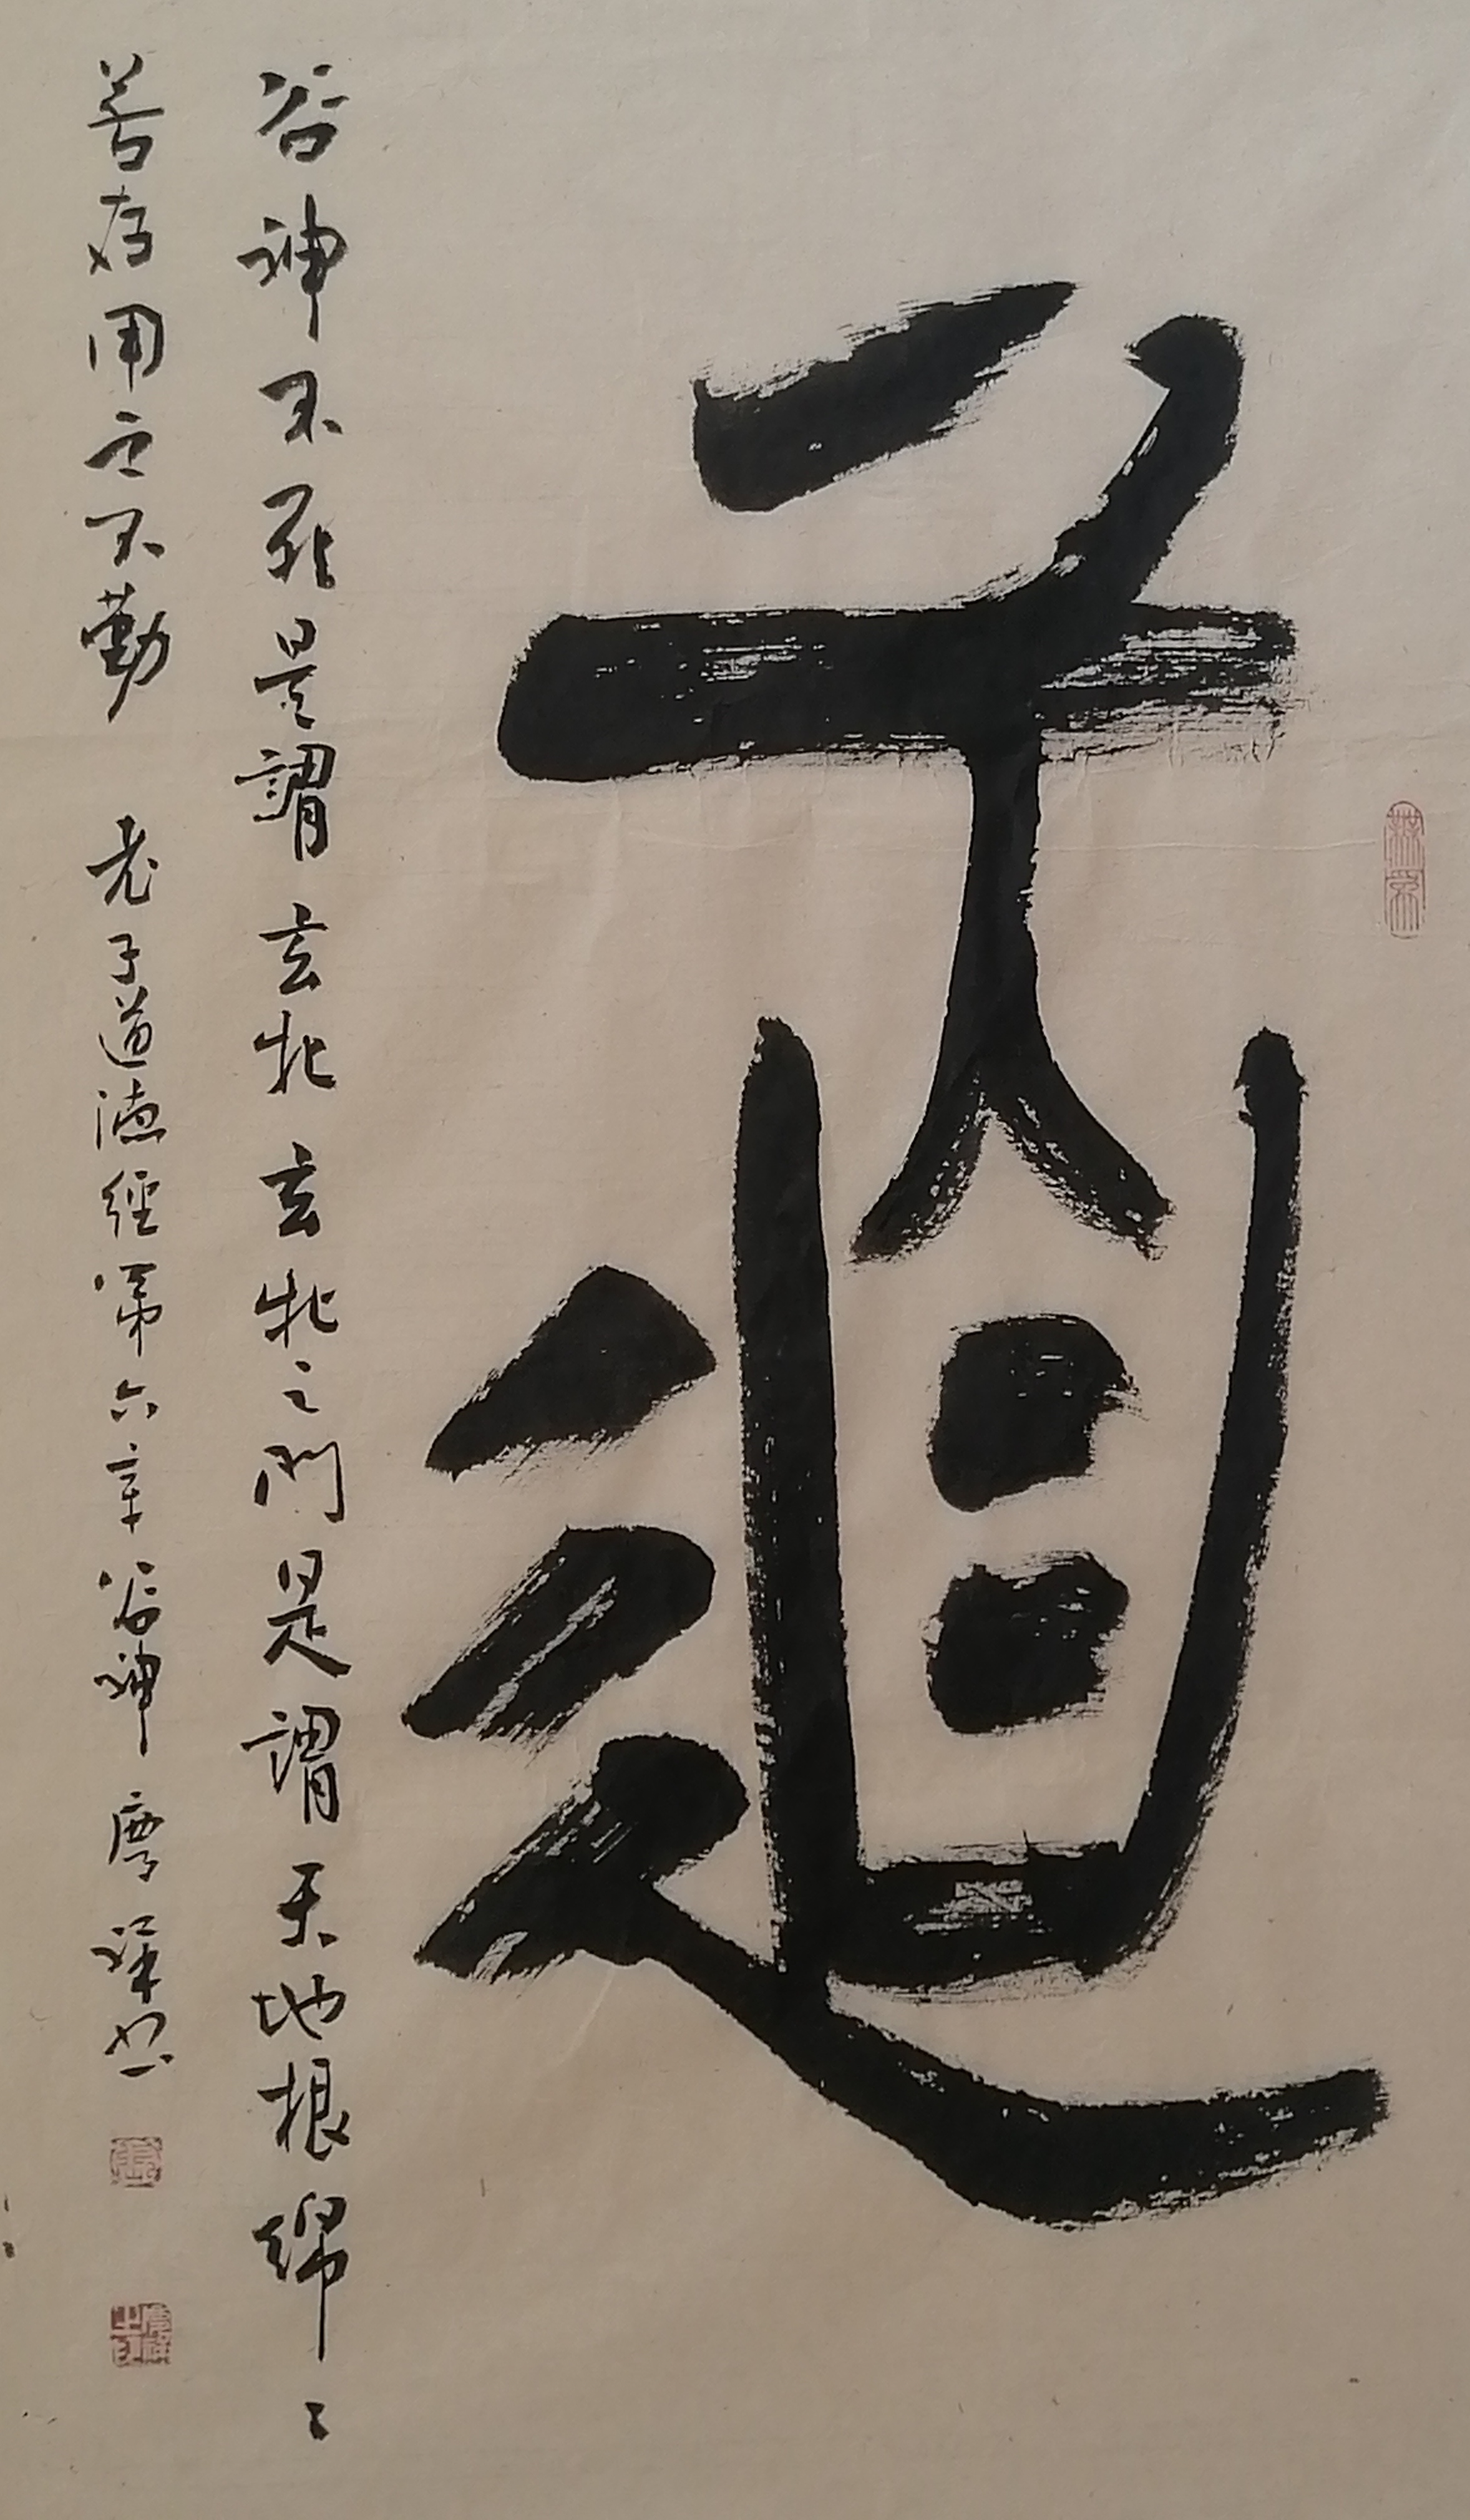 道
谷神不死是謂玄牝玄牝之門是謂天地根綿〻
若存用之不勤 老子道德經第六章谷神 祥书